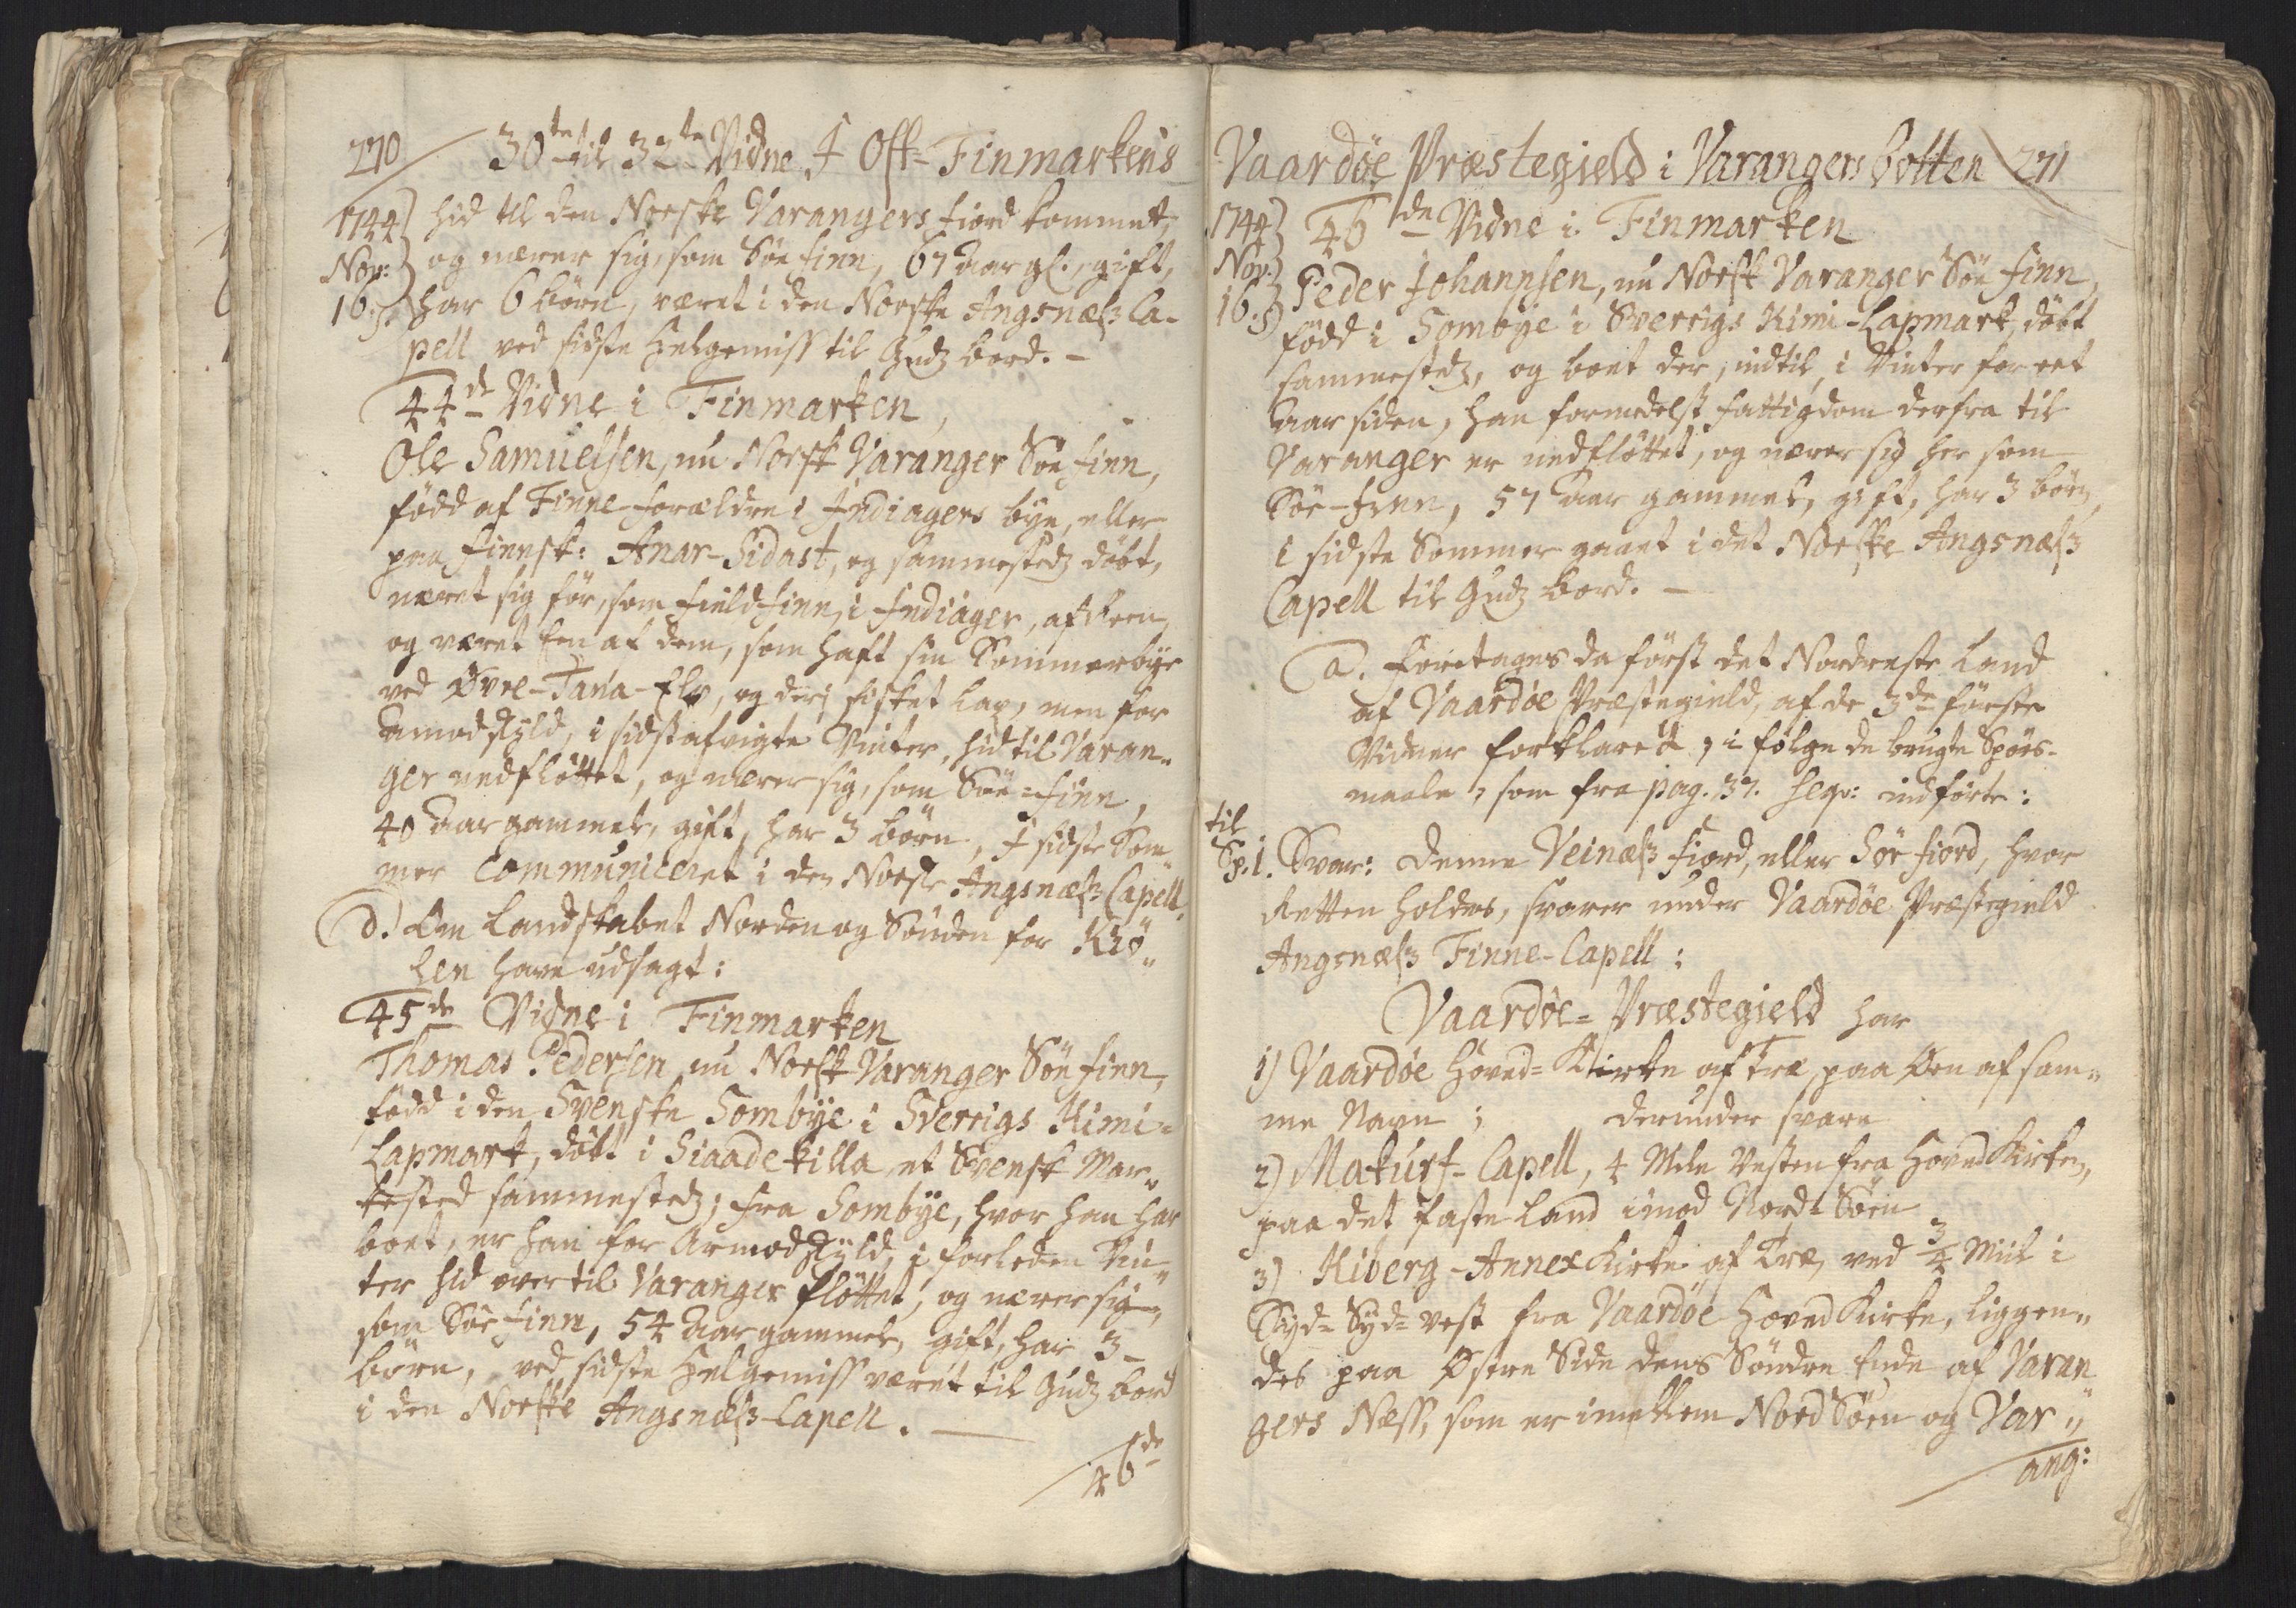 270 30te til 32te Vidne I Ost-Finmarkens
1744 hid til den Norske Varangers fiord kommet,
Nov: og nærer sig, som Søe finn, 67 aar gl., gift,
16. har 6 börn, været i den Norske Angsnæss Ca-
pell ved sidste Helgemiss til Gudz bord. -
44de Vidne i Finmarken,
Ole Samuelsen, nu Norsk Varanger Söe finn,
född af Finne-forældre i Indiagers bye, eller
paa finnsk: Anar-Sidast, og sammestedz döbt,
næret sig för, som field finn, i Indiager, af Reen,
og været een af dem, som haft sin Sommerbye
ved Øvre-Tana-Elv, og deri fisket Lax, men for
armod skyld, i sidstafvigte Vinter, hid til Varan-
ger nedflöttet, og nærer sig, som Söe-finn,
40 aar gammel, gift, har 3 börn, I sidste Som-
mer Communiceret i den Norske Angsnæss Capell.
d.) Om Landskabet Norden og Sönden for Kiö-
len have udsagt:
45de Vidne i Finmarken
Thomas Pedersen nu Norsk Varanger Söe finn,
född i den Svenske Sombÿe i Sverrigs Kimi-
Lapmark, döbt i Siaadekilla, et Svensk Mar-
kested sammestedz; fra Sombÿe, hvor han har
boet, er han for Armod skyld, i forleden Vin-
ter hid over til Varanger flöttet, og nærer sig,
som Söe finn, 54 aar gammel, gift, har 3
börn, ved sidste Helgemiss været til Gudz bord
i den Norske Angsnæss-Capell.
46de
Vaardöe Præstegield i Varangersbotten 271
1744 46de Vidne i Finmarken
Nov: Peder Johannsen, nu Norsk Varanger Söe finn,
16. född i Sombÿe i Sverrigs Kimi-Lapmark, döbt
sammestedz, og boet der, indtil, i Vinter for eet
aar siden, han formedelst fattigdom derfra til
Varanger er nedflöttet, og nærer sig her som
Söe-finn, 57 aar gammel, gift, har 3 börn,
i sidste Sommer gaaet i det Norske Angsnæss
Capell til Gudz bord. -
a. Foretages da först det Nordreste Land
af Vaardöe Præstegield, af de 3de förste
Vidner forklaret, i fölge de brugte Spörs-
maale, som fra pag. 37. seqv: indförte:
til
Sp. 1. Svar: Denne Veinæss fiord, eller Sör fiord, hvor
Retten holdes, svarer under Vaardöe Præstegield
Angsnæss Finne-Capell:
Vaardöe-Præstegield har
1) Vaardöe Hoved-Kirke af Træ, paa Øen af sam-
me Navn; derunder svare
2) Makurf-Capell, 4 Mile Vesten fra Hoved Kirken,
paa det faste Land imod Nord-Söen
3) Kiberg-Annex Kirke af Træ, ved 3/4 Miil i
Syd-Syd-vest fra Vaardöe Hoved Kirke, liggen-
des paa Østre Side dens Söndre Ende af Varan
gers Næss, som er imellem Nord Söen og Var-
ang: